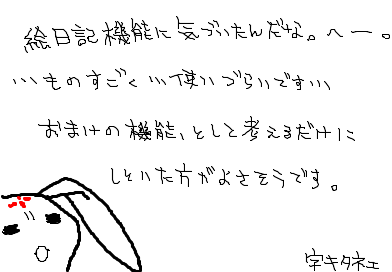 絵日記機能に気づいたんだな。へー。
…ものすごく…使いづらいです…
おまけの機能、として考えるだけに
しといた方がよさそうです。
字キタネェ